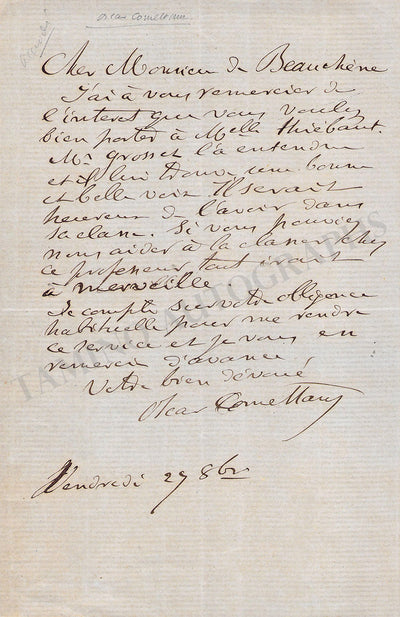 Oscar Comettant
Cher Monsieur de Beauchêne
J'ai à vous remercier de
l'interet que vous voulez
bien porter à Melle Thiébaut.
Mr Grosset l'a entendue
et il lui trouve une bonne
et belle voix. Il serait
heureux de l'avoir dans
sa classe. Si vous pouvez
nous aider à la classer chez
ce professeur tout irait
à merveille
Je compte sur votre obligence
habituelle pour me rendre
ce service et je vous en
remercie d'avance,
Votre bien dévoué,
Oscar Comettant
Vendredi 27 8bre
TAMINO AUTOGRAPHS